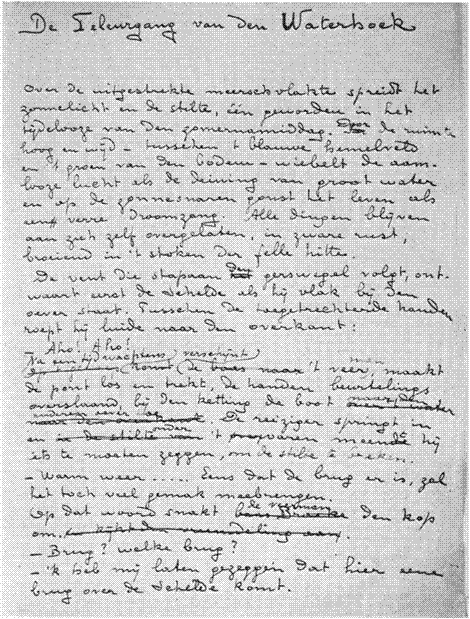 De Teleurgang van den Waterhoek
Over de uitgestrekte meerschvlakte spreidt het
zonnelicht en de stilte, één geworden in het
tijdelooze van den zomernamiddag. Door de ruimte
hoog en wijd – tusschen 't blauwe hemelveld
en 't groen van den bodem – wiebelt de aam-
looze lucht als de deining van groot water
en op de zonnesnaren gonst het leven als
een verre droomzang. Alle dingen blijven
aan zich zelf overgelaten, in zware rust,
broeiend in 't stoken der felle hitte.
De vent die stapaan den gerswegel volgt, ont-
waart eerst de Schelde als hij vlak bij den
oever staat. Tusschen de toegetrechterde handen
roept hij luide naar den overkant:
– Aho! Aho!
Na een tijd verschijnt
komt de baas naar 't veer, maakt
de pont los en trekt, de handen beurtelings
overslaand, bij den ketting de boot naar den
anderen oever op
naar den overkant. De reiziger springt in
en onder 't varen meende hij
iets te moeten zeggen, om de stilte te breken.
– Warm weer ..... Eens dat de brug er is, zal
het toch veel gemak meebrengen.
Op dat woord snakt de veerman Broeke den kop
om en kijkt den vreemdeling aan.
– Brug? welke brug?
– 'k Heb mij laten gezeggen dat hier eene
brug over de Schelde komt.